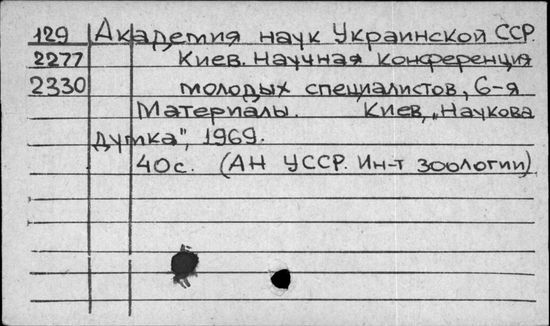 129 Академия наук Украинской ССР.
2277 Киев. Научная конференция
2330 молодых специалистов, 6-я
Материалы. Киев, „Наукова
думка", 1969.
40с. (АН УССР. Ин-т зоологии)